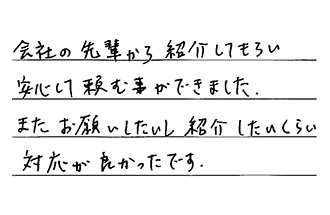 会社の先輩から紹介してもらい
安心して頼む事ができました.
またお願いしたいし紹介したいくらい
対応が良かったです.